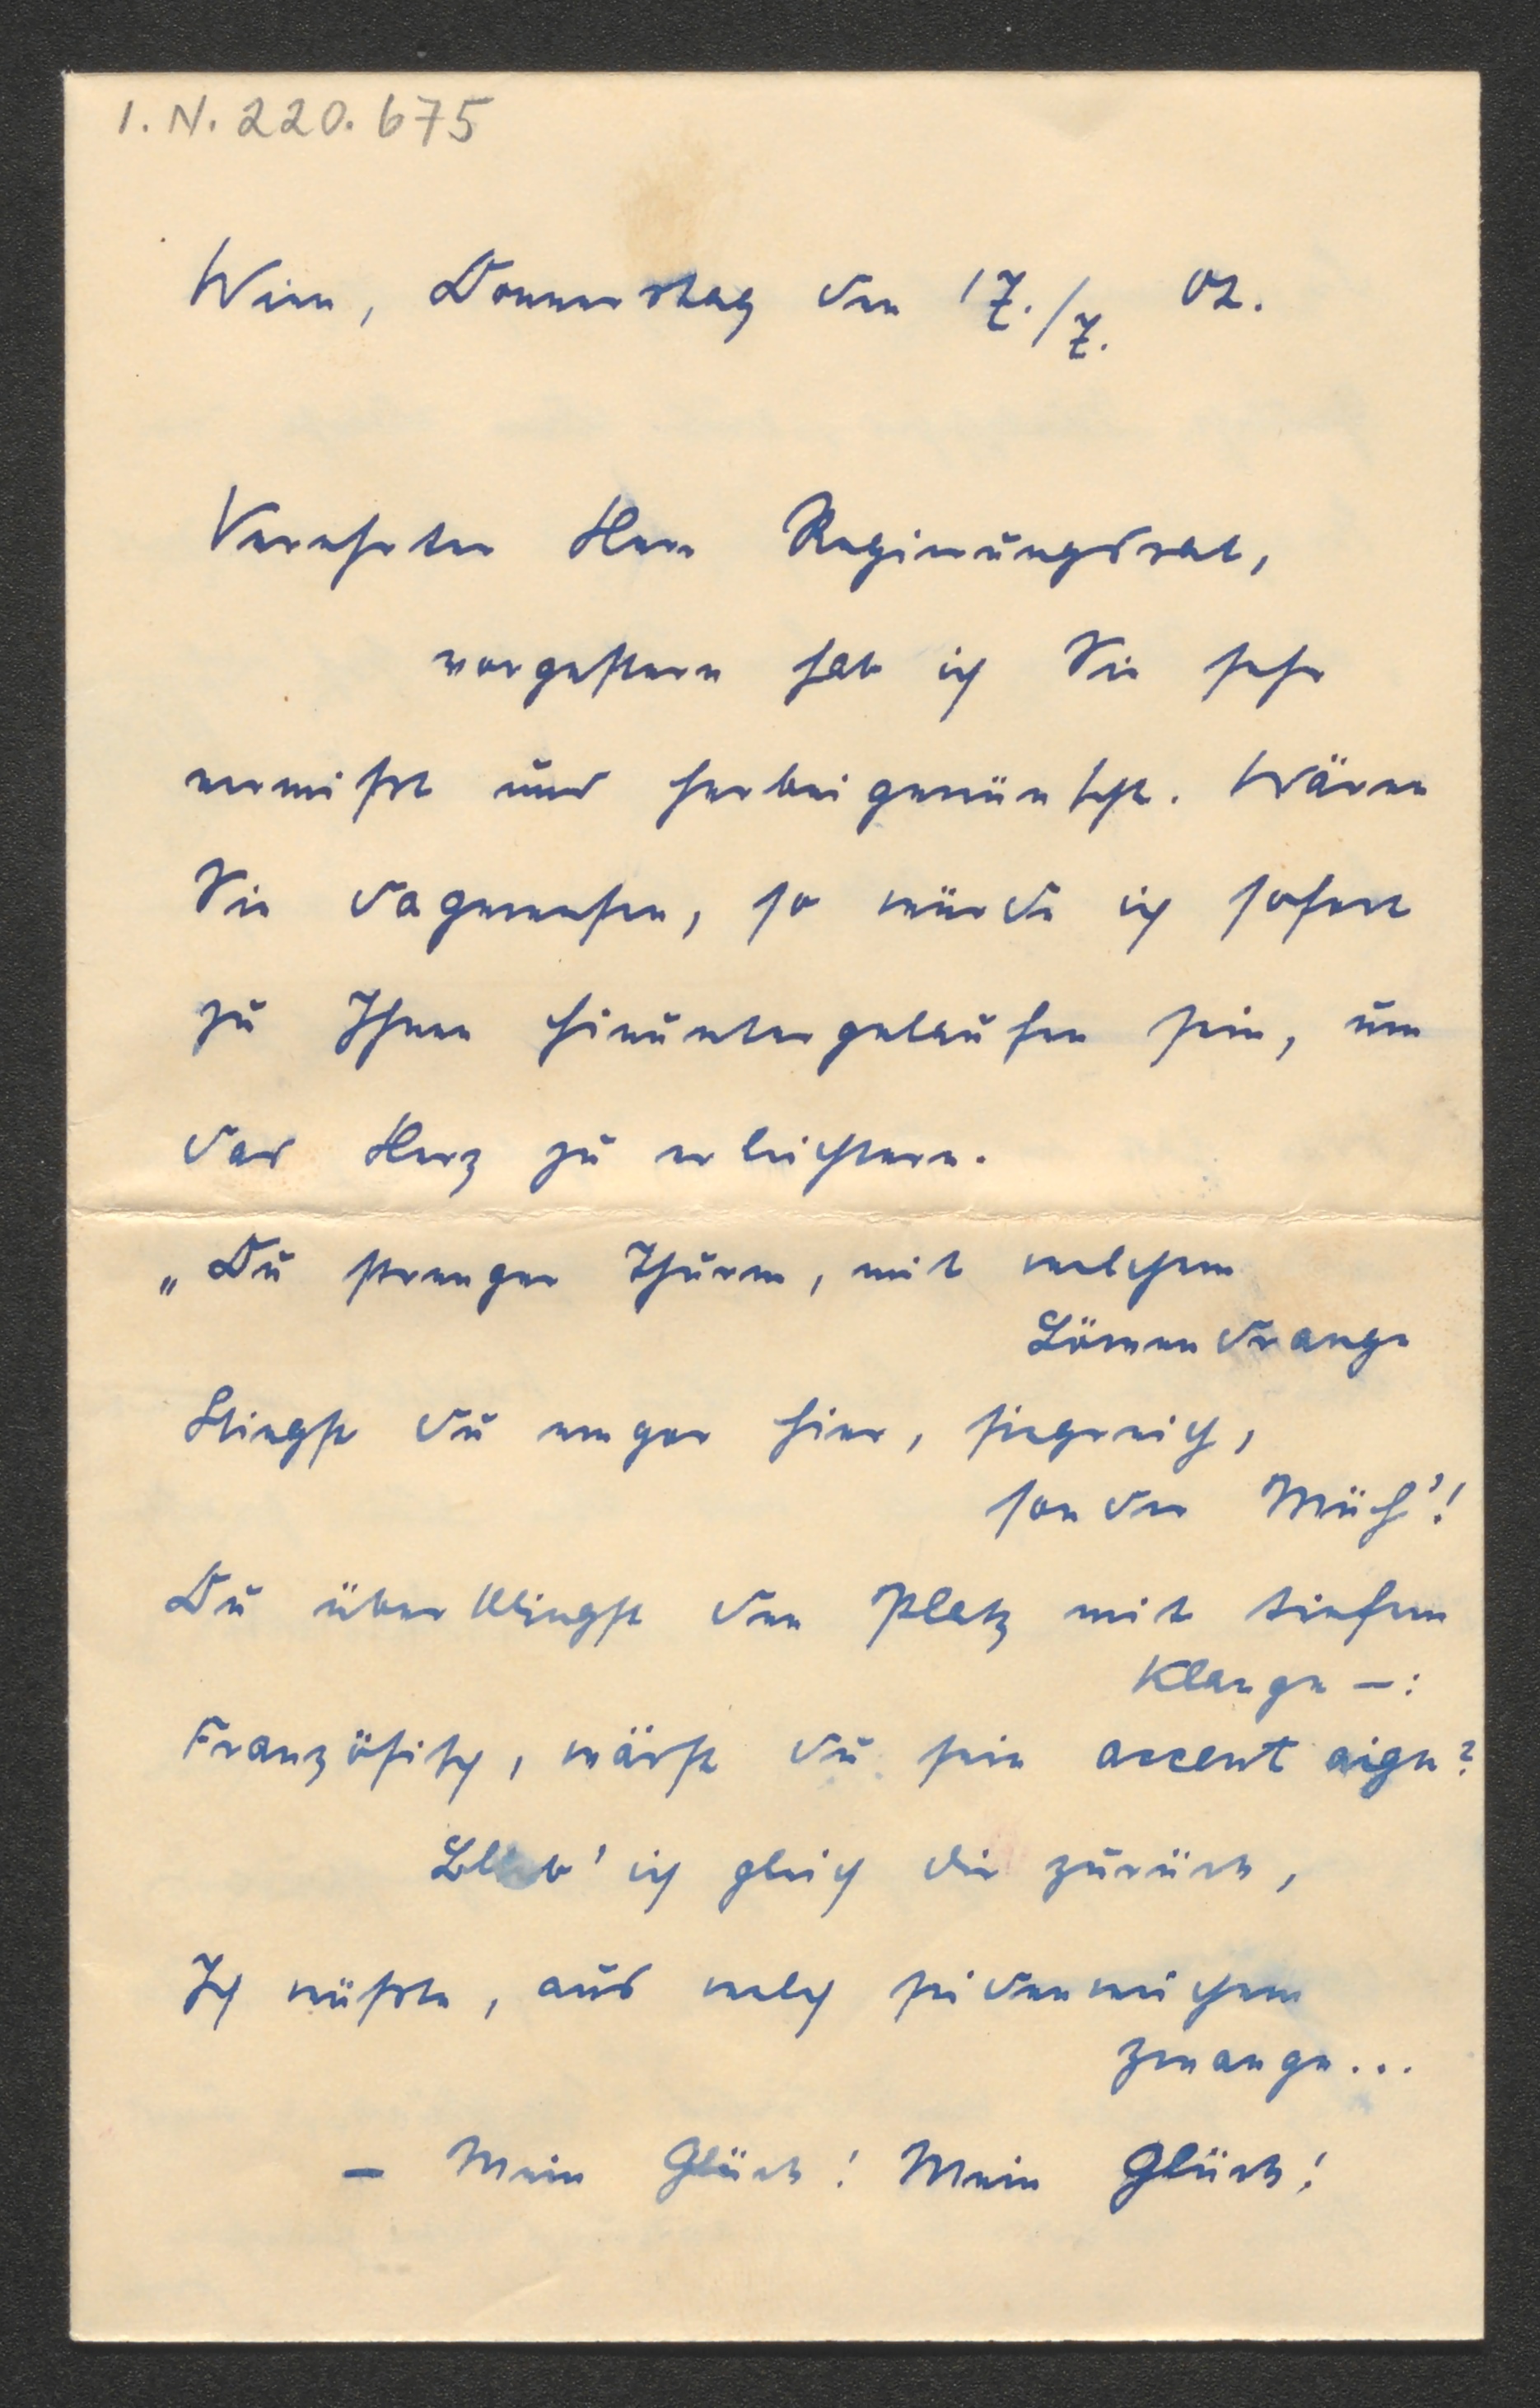 I. N. 220.675
Wien, Donnerstag den 17./7. 02.
Verehrter Herr Regierungsrat,
vorgestern hab ich Sie sehr
vermißt und herbeigewünscht. Wären
Sie dagewesen, so würde ich sofort
zu Ihnen hinuntergelaufen sein, um
das Herz zu erleichtern.
„Du strenger Thurm, mit welchem
Löwendrange
Stiegst du empor hier, siegreich,
sonder Müh'!
Du überklingst den Platz mit tiefem
Klange –:
Französisch, wärst du sein accent aigu?
Blieb' ich gleich dir zurück,
Ich wüßte, aus welch seidenweichem
Zwange...
– Mein Glück! Mein Glück!